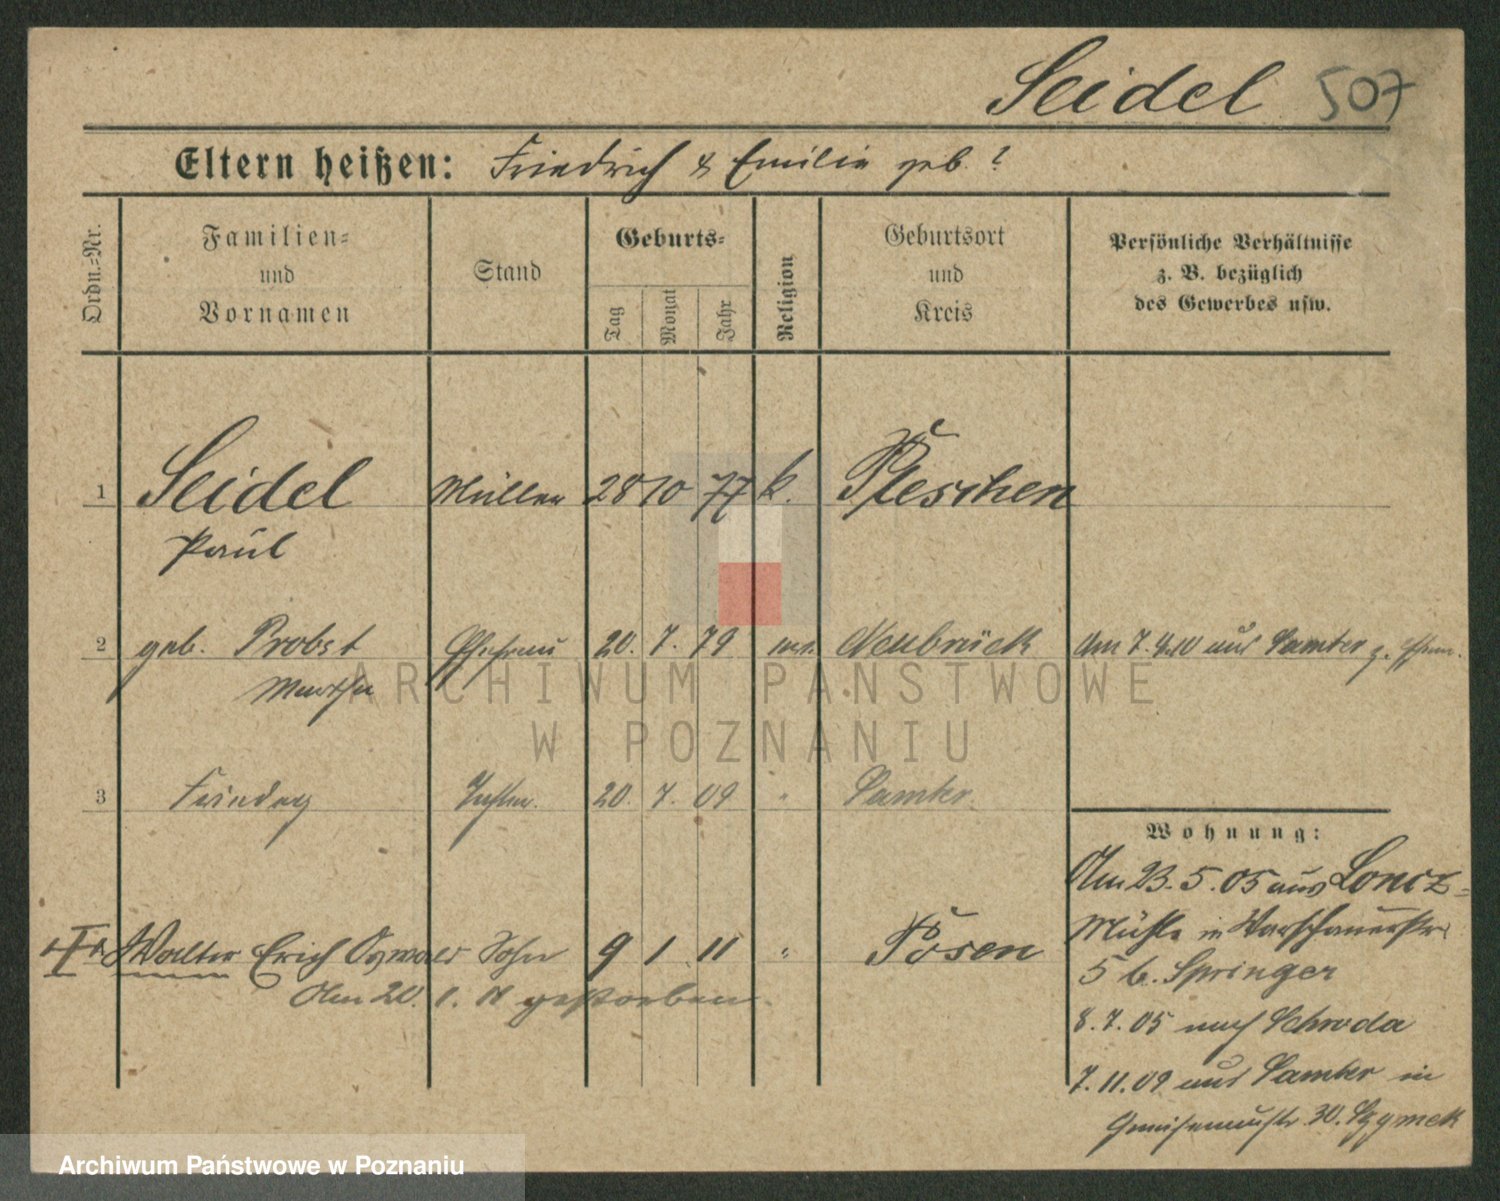 Seidel 507
Eltern heißen: Friedrich & Emilie geb. ?
Ordn.-Nr.
Familien-
und
Vornamen
Stand
Geburts-
Tag
Monat
Jahr
Religion
Geburtsort
und
Kreis
Persönliche Verhältnisse
z. B. bezüglich
des Gewerbes usw.
1 Seidel Müller 28 10 77 k. Pleschen
Paul
2 geb. Probst Ehefrau 20. 7. 79 Neubrück Am 7. 4. 10 aus Samter z.
Martha
3 Tochter 20. 7. 09 " Samter
Walter Erich Oswald Sohn 9 1 11 " Posen
Am 20. 1. 11 gestorben.
Wohnung:
Am 23. 5. 05 aus Loncz-
Mühle in Warschauerstr.
5 b. Springer
8. 7. 05 nach Schroda
7. 11. 09 aus Samter in
Gneisenaustr. 30.
ARCHIWUM PAŃSTWOWE
W POZNANIU
Archiwum Państwowe w Poznaniu